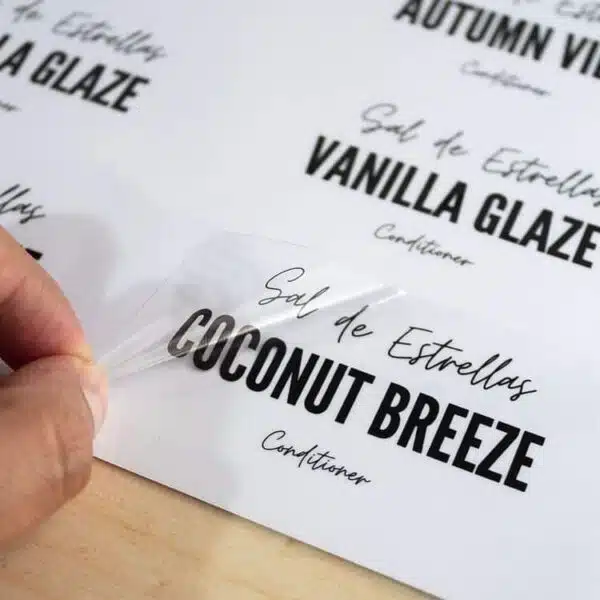 de Estrellas
LA GLAZE
AUTUMN
Conditioner
Sal de Estrellas
VANILLA GLAZE
Conditioner
Sal de Estrellas
COCONUT BREEZE
Conditioner